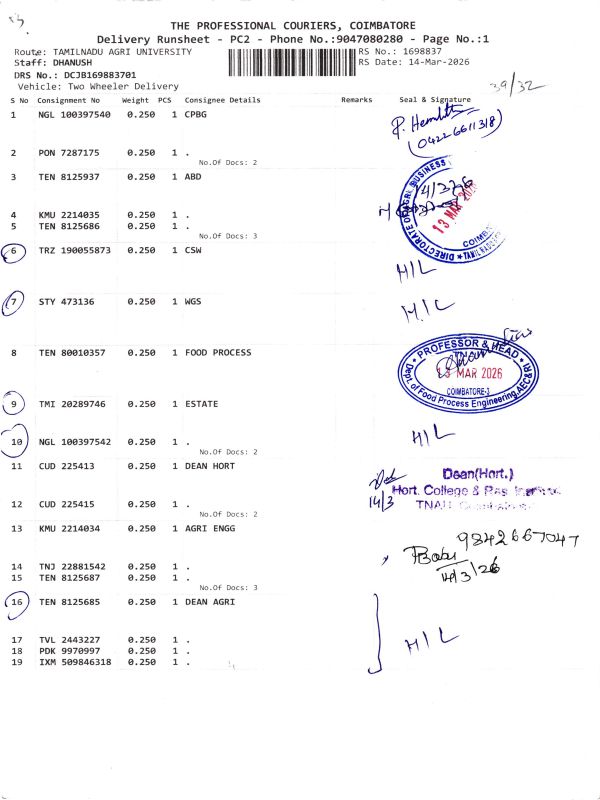 THE PROFESSIONAL COURIERS, COIMBATORE
Delivery Runsheet - PC2 - Phone No.:9047080280 - Page No.:1
Route: TAMILNADU AGRI UNIVERSITY
RS No.: 1698837
Staff: DHANUSH
RS Date: 14-Mar-2026
DRS No.: DCJB169883701
Vehicle: Two Wheeler Delivery
39/32
S No Consignment No Weight PCS Consignee Details Remarks Seal & Signature
1 NGL 100397540 0.250 1 CPBG
(04226611318)
2 PON 7287175 0.250 1 .
No.Of Docs: 2
3 TEN 8125937 0.250 1 ABD
DIRECTORATE OF AGRI BUSINESS
13 MAR 202
COIMB
4 KMU 2214035 0.250 1 .
5 TEN 8125686 0.250 1 .
No.Of Docs: 3
6 TRZ 190055873 0.250 1 CSW
H/L
7 STY 473136 0.250 1 WGS
H/L
8 TEN 80010357 0.250 1 FOOD PROCESS
PROFESSOR & HEAD
MAR 2026
COIMBATORE-3
Dept. of Food Process Engineering, AEC&RI
9 TMI 20289746 0.250 1 ESTATE
10 NGL 100397542 0.250 1 .
H/L
No.Of Docs: 2
11 CUD 225413 0.250 1 DEAN HORT
14/3
Dean(Hort.)
Hort. College & Res. Institute
TNAU
12 CUD 225415 0.250 1 .
No.Of Docs: 2
13 KMU 2214034 0.250 1 AGRI ENGG
9842667047
Babu
14/3/26
14 TNJ 22881542 0.250 1 .
15 TEN 8125687 0.250 1 .
No.Of Docs: 3
16 TEN 8125685 0.250 1 DEAN AGRI
H/L
17 TVL 2443227 0.250 1 .
18 PDK 9970997 0.250 1 .
19 IXM 509846318 0.250 1 .